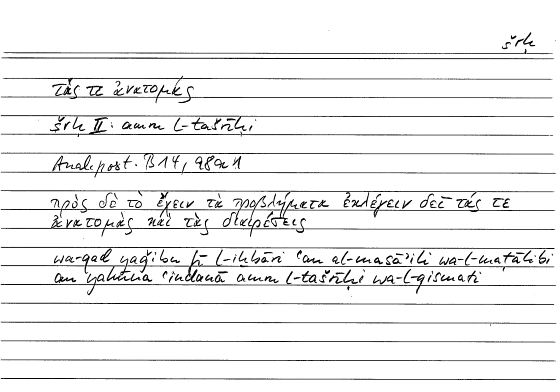 šrḥ
τάς τε ἀνατομάς
šrḥ II: amru l-tašrīḥi
Anal. post. B 14, 98a1
πρὸς δὲ τὸ ἔχειν τὰ προβλήματα ἐκλέγειν δεῖ τάς τε
ἀνατομὰς καὶ τὰς διαιρέσεις
wa-qad yaǧibu fī l-iḫbāri ʿan al-masāʾili wa-l-maṭālibi
an yakūna ʿindanā amru l-tašrīḥi wa-l-qismati